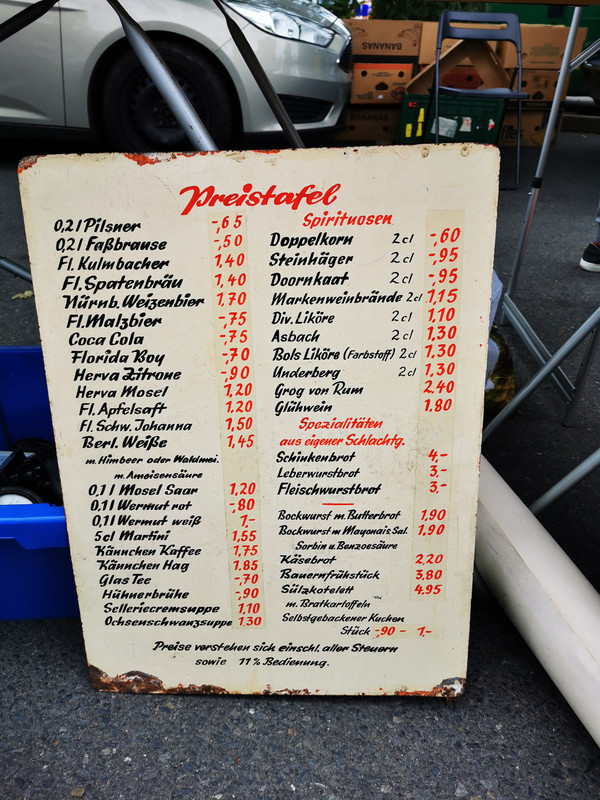 BANANAS
Preistafel
0,2 l Pilsner -,65
0,2 l Faßbrause -,50
Fl. Kulmbacher 1,40
Fl. Spatenbräu 1,40
Nürnb. Weizenbier 1,70
Fl. Malzbier -,75
Coca Cola -,75
Florida Boy -,70
Herva Zitrone -,90
Herva Mosel 1,20
Fl. Apfelsaft 1,20
Fl. Schw. Johanna 1,50
Berl. Weiße 1,45
m. Himbeer oder Waldmei.
m. Ameisensäure
0,1 l Mosel Saar 1,20
0,1 l Wermut rot -,80
0,1 l Wermut weiß 1,-
5 cl Martini 1,55
Kännchen Kaffee 1,75
Kännchen Hag 1.85
Glas Tee -,70
Hühnerbrühe -,90
Selleriecremsuppe 1,10
Ochsenschwanzsuppe 1.30
Spirituosen
Doppelkorn 2 cl -,60
Steinhäger 2 cl -,95
Doornkaat 2 cl -,95
Markenweinbrände 2 cl 1,15
Div. Liköre 2 cl 1,10
Asbach 2 cl 1,30
Bols Liköre (Farbstoff) 2 cl 1,30
Underberg 2 cl 1,30
Grog von Rum 2.40
Glühwein 1.80
Spezialitäten
aus eigener Schlachtg.
Schinkenbrot 4,-
Leberwurstbrot 3,-
Fleischwurstbrot 3,-
Bockwurst m. Butterbrot 1,90
Bockwurst m. Mayonais Sal. 1,90
Sorbin u. Benzoesäure
Käsebrot 2,20
Bauernfrühstück 3,80
Sülzkotelett 4.95
m. Bratkartoffeln
Selbstgebackener Kuchen
Stück -,90 - 1,-
Preise verstehen sich einschl. aller Steuern
sowie 11% Bedienung.